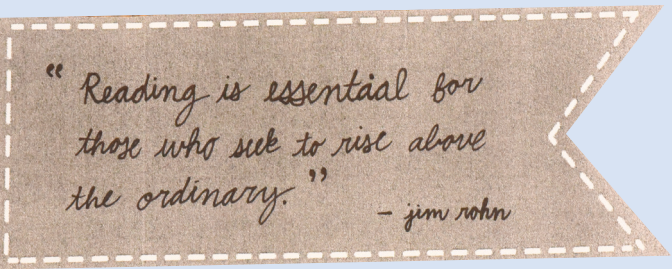 “ Reading is essential for
those who seek to rise above
the ordinary. ”
- jim rohn